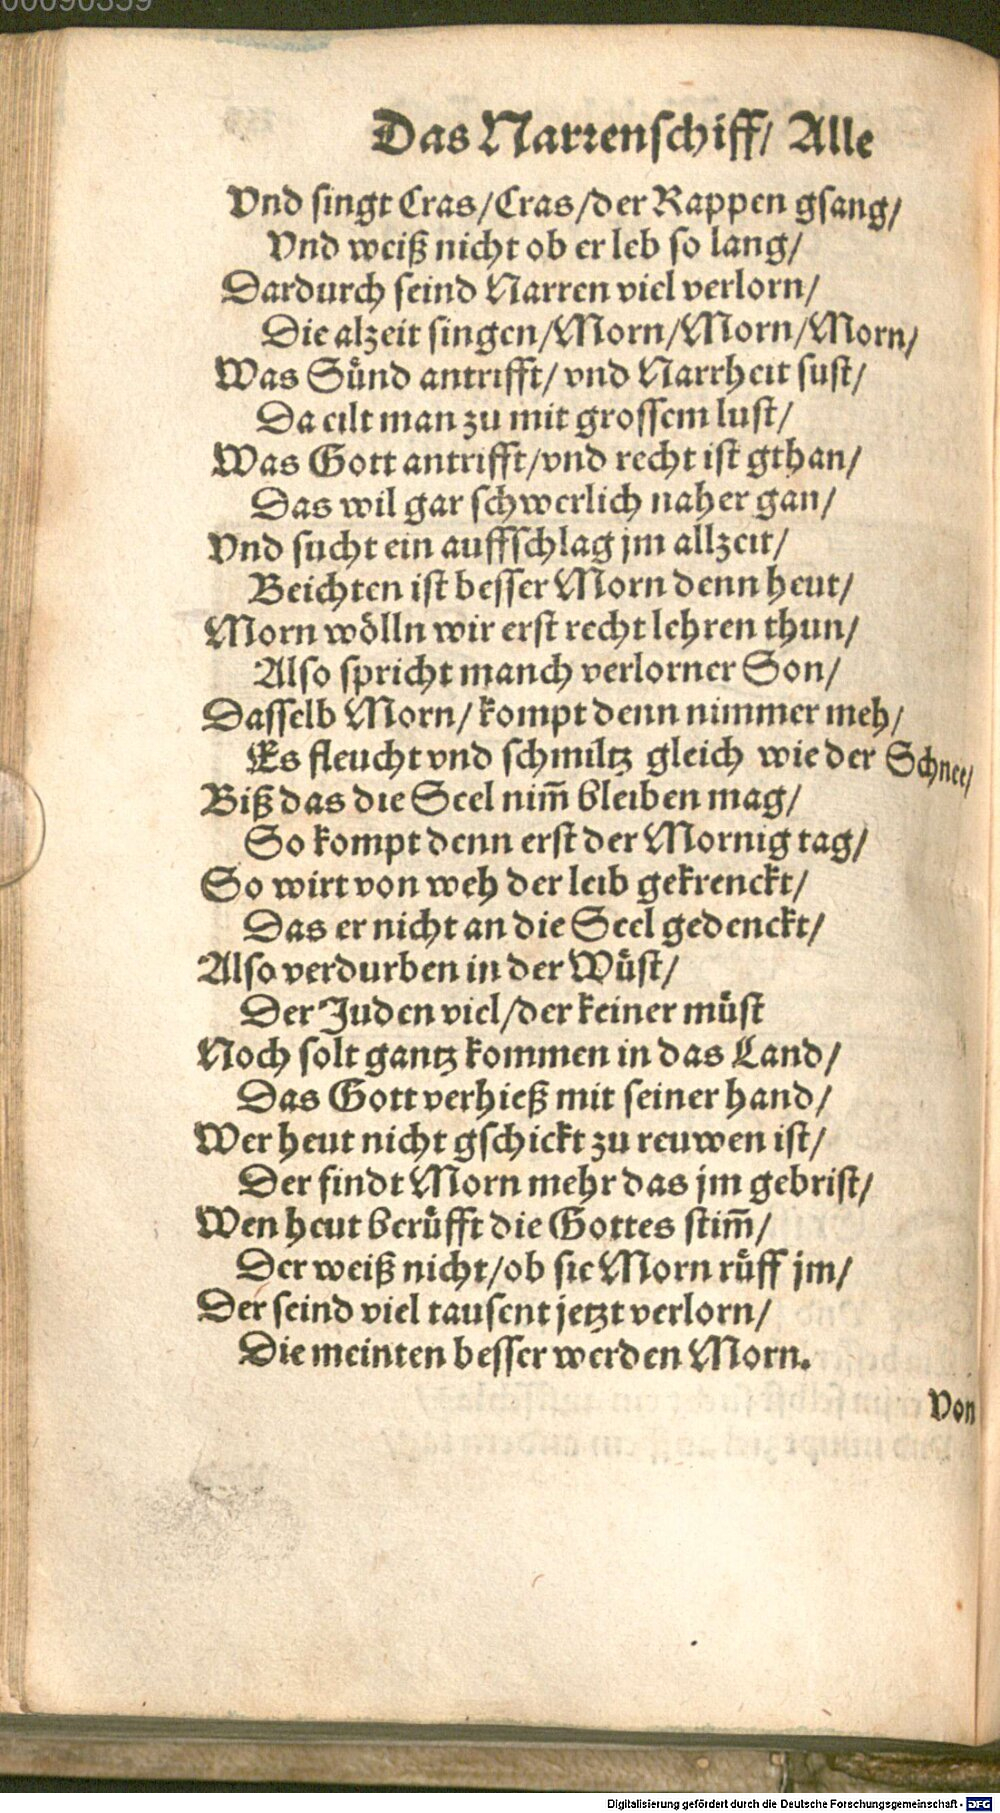 00090359
Das Narrenschiff/ Alle
Vnd singt Cras/Cras/der Rappen gsang/
Vnd weiß nicht ob er leb so lang/
Dardurch seind Narren viel verlorn/
Die alzeit singen/Morn/Morn/Morn/
Was Sünd antrifft/ vnd Narrheit sust/
Da eilt man zu mit grossem lust/
Was Gott antrifft/vnd recht ist gthan/
Das wil gar schwerlich naher gan/
Vnd sucht ein auffschlag jm allzeit/
Beichten ist besser Morn denn heut/
Morn wölln wir erst recht lehren thun/
Also spricht manch verlorner Son/
Dasselb Morn/ kompt denn nimmer meh/
Es fleucht vnd schmiltz gleich wie der Schnee/
Biß das die Seel nim̃ bleiben mag/
So kompt denn erst der Mornig tag/
So wirt von weh der leib gekrenckt/
Das er nicht an die Seel gedenckt/
Also verdurben in der Wüst/
Der Juden viel/der keiner müst
Noch solt gantz kommen in das Land/
Das Gott verhieß mit seiner hand/
Wer heut nicht gschickt zu reuwen ist/
Der findt Morn mehr das jm gebrist/
Wen heut berüfft die Gottes stim̃/
Der weiß nicht/ob sie Morn rüff jm/
Der seind viel tausent jetzt verlorn/
Die meinten besser werden Morn.
Von
Digitalisierung gefördert durch die Deutsche Forschungsgemeinschaft - DFG